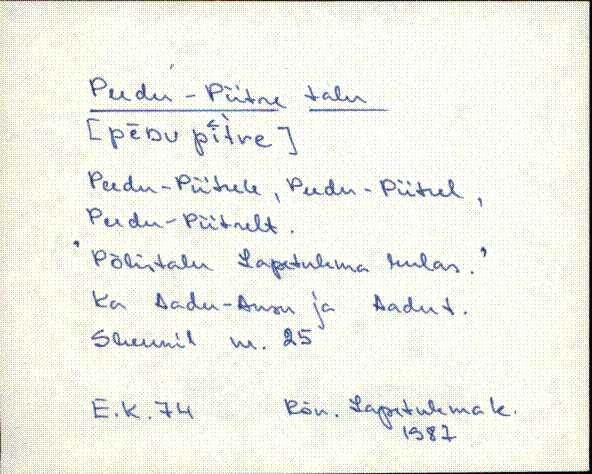 Peedu-Piitre talu
[pēᴅu pī̬tre]
Peedu-Piitrele, Peedu-Piitrel,
Peedu-Piitrelt.
'Põlistalu Lapetukma külas.'
Ka Aadu-Ansu ja Aadu t.
Skeemil nr. 25
E.K. 74 Rõn. Lapetukma k.
1987